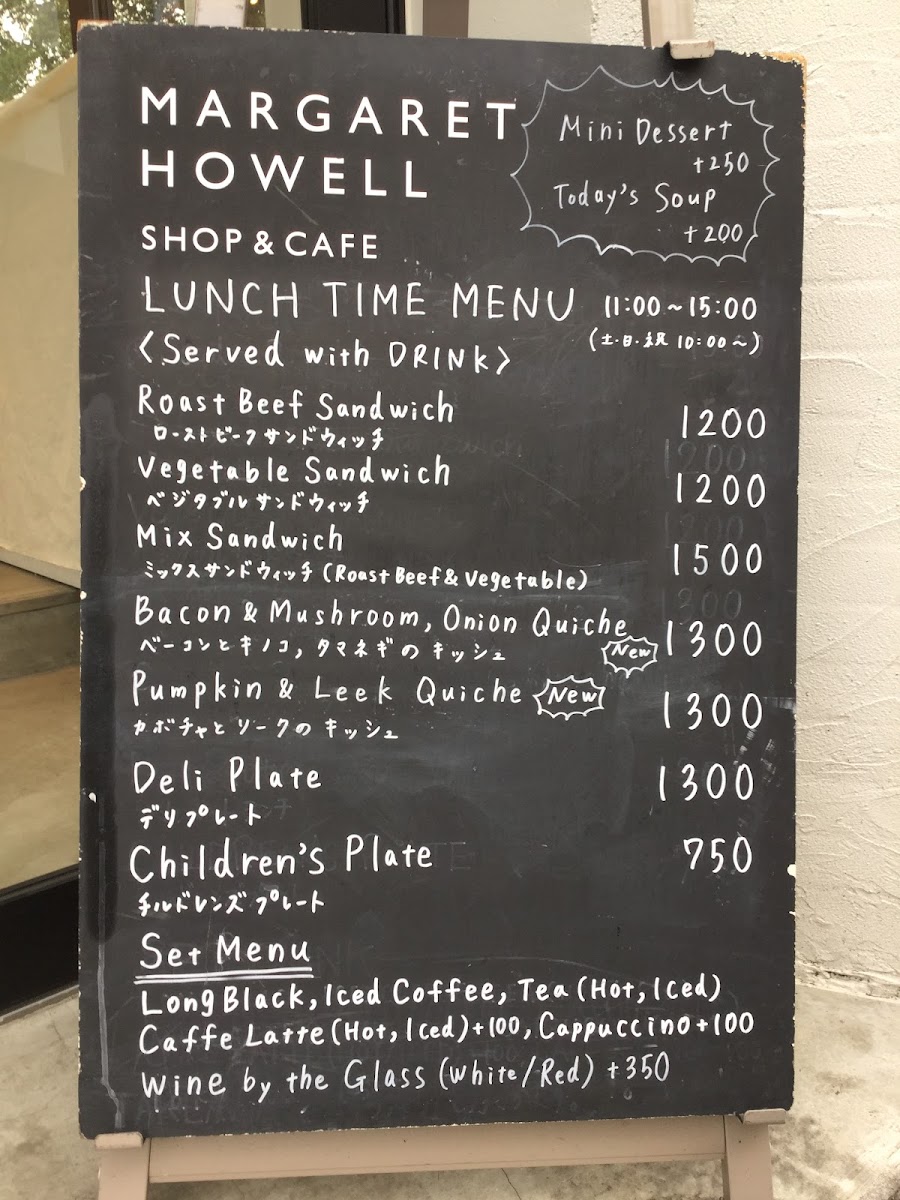 MARGARET
HOWELL
SHOP & CAFE
Mini Dessert
+250
Today's Soup
+200
LUNCH TIME MENU 11:00~15:00
(土・日・祝 10:00~)
<Served with DRINK>
Roast Beef Sandwich 1200
ローストビーフサンドウィッチ
Vegetable Sandwich 1200
ベジタブルサンドウィッチ
Mix Sandwich 1500
ミックスサンドウィッチ (Roast Beef & Vegetable)
Bacon & Mushroom, Onion Quiche 1300
ベーコンとキノコ, タマネギのキッシュ New
Pumpkin & Leek Quiche New 1300
カボチャとリークのキッシュ
Deli Plate 1300
デリプレート
Children's Plate 750
チルドレンズプレート
Set Menu
Long Black, Iced Coffee, Tea (Hot, Iced)
Caffe Latte (Hot, Iced) +100, Cappuccino +100
Wine by the Glass (White/Red) +350